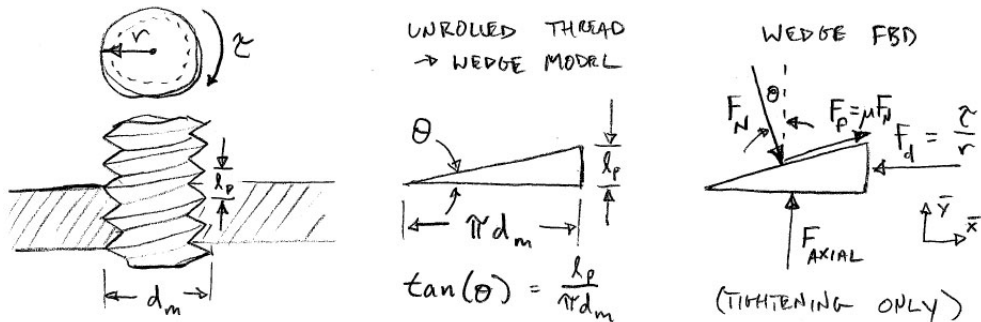 r
τ
l_p
d_m
UNROLLED THREAD
→ WEDGE MODEL
θ
l_p
π d_m
tan(θ) = l_p / π d_m
WEDGE FBD
θ
F_N
F_f = μF_N
F_d = τ / r
F_AXIAL
ȳ
x̄
(TIGHTENING ONLY)